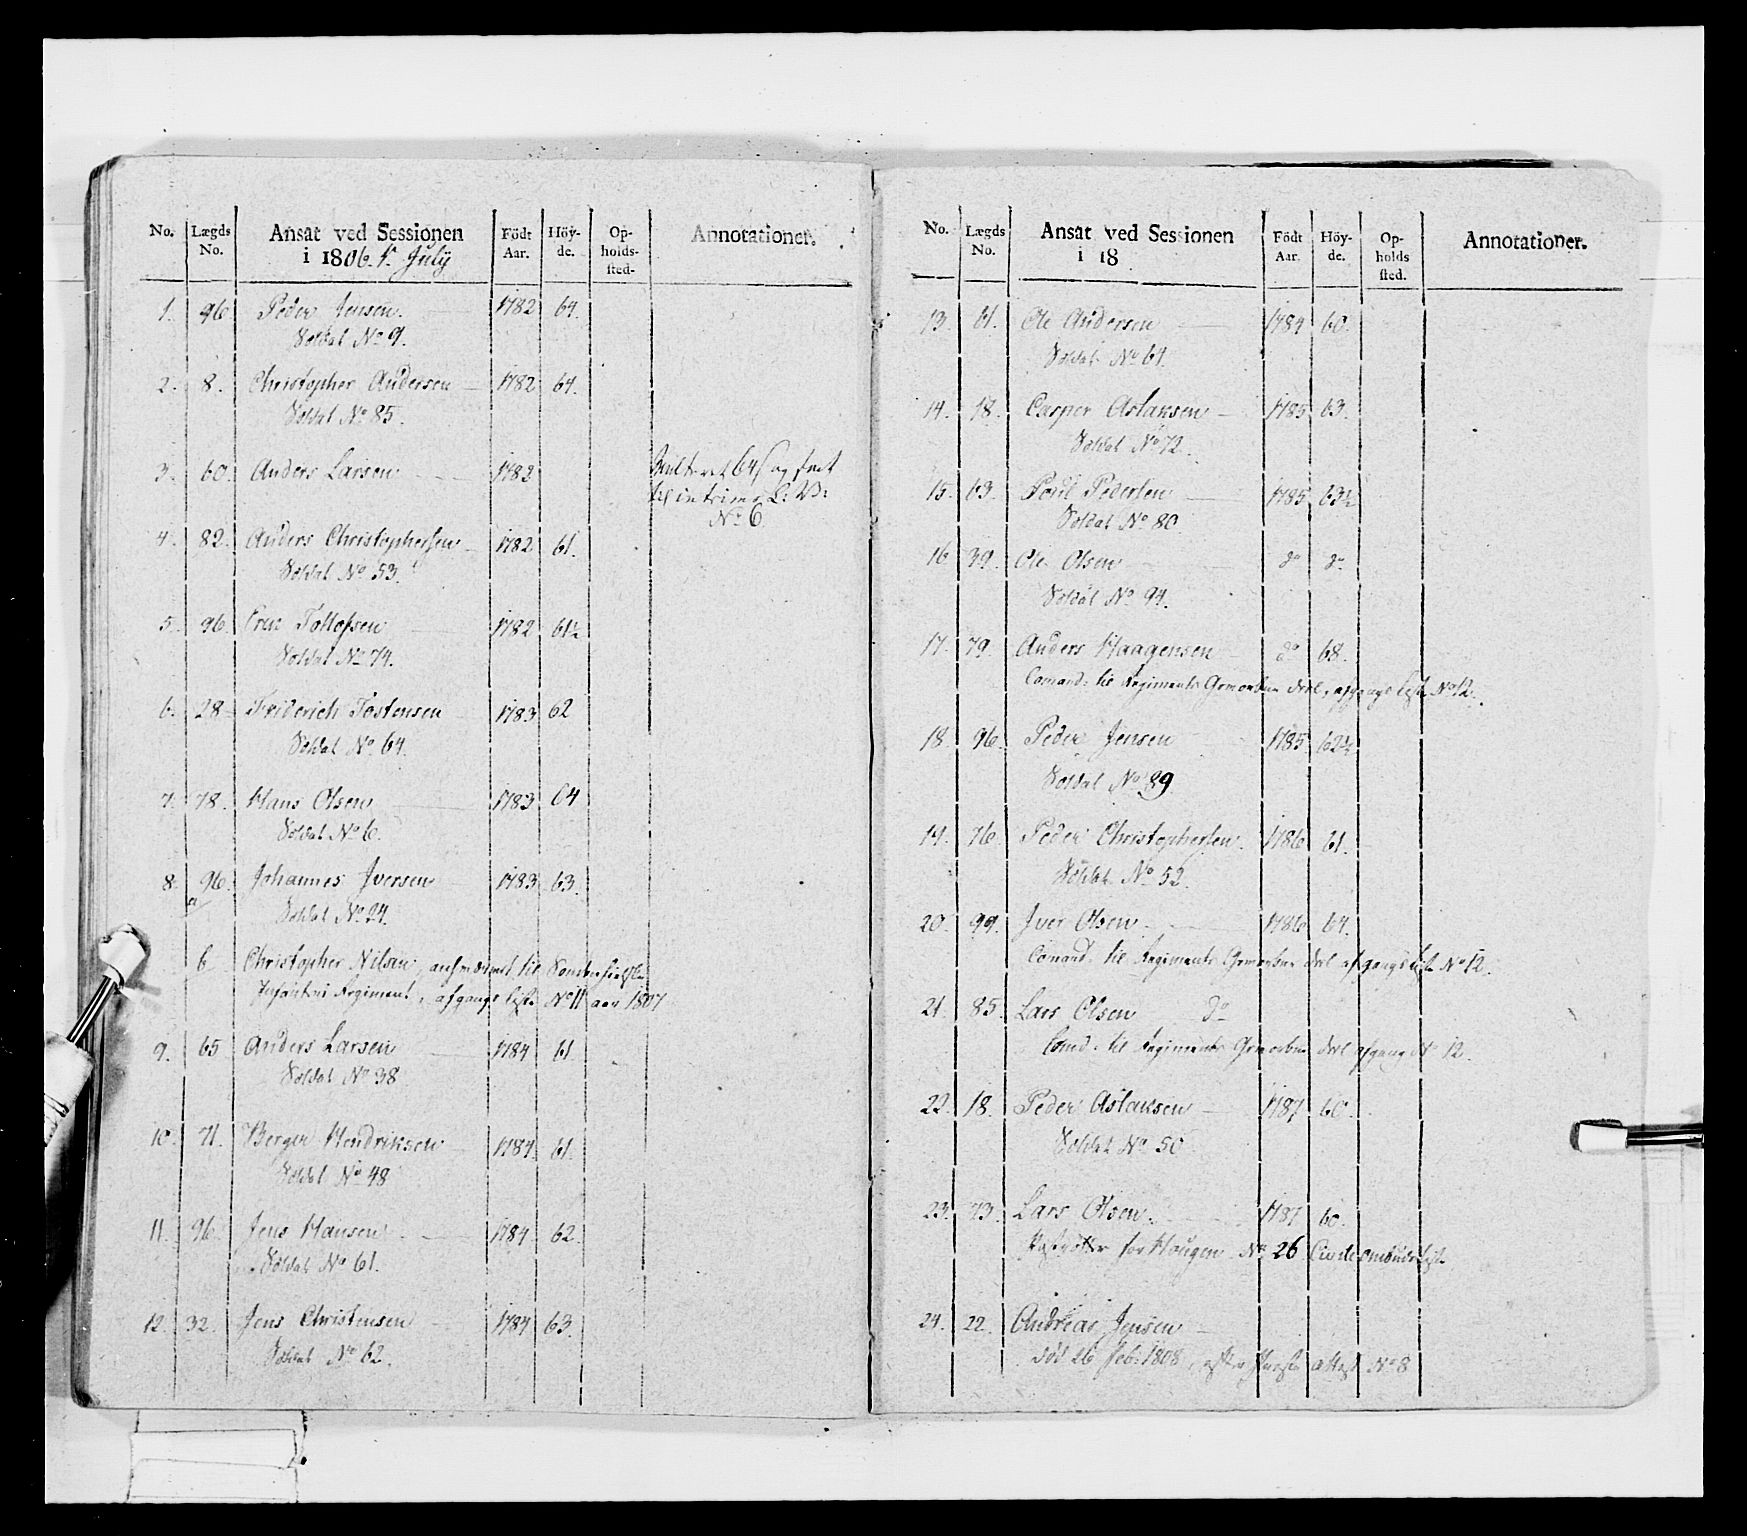 No. Lægds No. Ansat ved Sessionen i 1806. 1. July Födt Aar. Höy-de. Op-holds-sted- Annotationer.
1. 96 Peder Jensen. 1782 64.
Soldat No 9.
2. 8. Christopher Andersen 1782 64.
Soldat No 85.
3. 60. Anders Larsen 1782 64 og
No 6.
4. 82. Anders Christophersen 1782 61.
Soldat No 53.
5. 96. Tollofsen 1782 61½
Soldat No 74.
6. 28 Friderich Tostensen 1783 62
Soldat No 64.
7. 78. Hans Olsen 1783 64
Soldat No 6.
8. 96. Johannes Iversen 1783 63.
a/ Soldat No 24.
6 Christopher Nilsen, til Sondenfieldske
Infanteri Regiment, afgangs liste No 11 aar 1807
9. 65 Anders Larsen 1784 61
Soldat No 38
10. 71. Berger Hendriksen 1784. 61.
Soldat No 48
11. 96. Jens Hansen 1784 62.
Soldat No 61.
12. 32. Jens Christensen 1784 63.
Soldat No 62.
No. Lægds No. Ansat ved Sessionen i 18 Födt Aar. Höy-de. Op-holds sted. Annotationer.
13. 61. Ole Andersen 1784 60.
Soldat No 64.
14. 18. Casper Aslaksen 1785 63.
Soldat No 72.
15. 63. Poul Pedersen 1785 63½
Soldat No 80
16 39. Ole Olsen do do
Soldat No 94.
17. 79. Anders Haagensen do 68.
Comand: til Regiments afgangs liste No 12.
18. 96. Peder Jensen 1785 62½
Soldat No 89
19. 76. Peder Christophersen. 1786 61.
Soldat No 52.
20. 99. Iver Olsen 1786 64.
Comand. til Regiments afgangsliste No 12.
21. 85. Lars Olsen do
Comd. til Regiments afgang No 12.
22. 18. Peder Aslaksen 1787 60.
Soldat No 50
23. 73. Lars Olsen. 1787 60.
for Haugen No 26 Civile ombuds liste
24. 22. Andreas Jensen
död 26 Feb: 1808, attest No 8